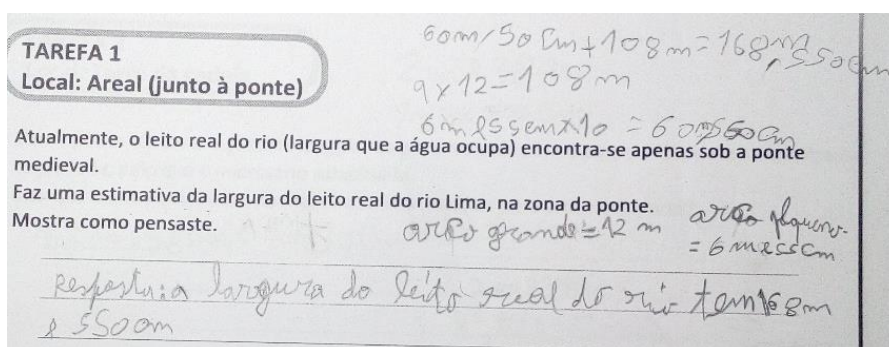 60m, 50cm+108m=168m,550cm
TAREFA 1
Local: Areal (junto à ponte)
9x12=108m
6me55cmx10=60m,550cm
Atualmente, o leito real do rio (largura que a água ocupa) encontra-se apenas sob a ponte
medieval.
Faz uma estimativa da largura do leito real do rio Lima, na zona da ponte.
Mostra como pensaste.
arco grande=12 m
arco pequeno
= 6 m e 55cm
Resposta: a largura do leito real do rio tem 168m
e 550cm